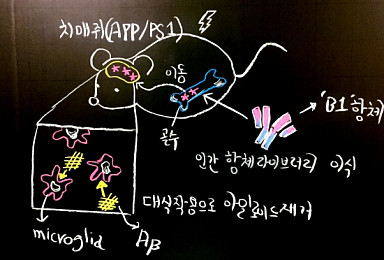 치매쥐(APP/PS1)
이동
골수
"B1" 항체
인간 항체 라이브러리 이식
대식작용으로 아밀로이드제거
microglia
Aβ